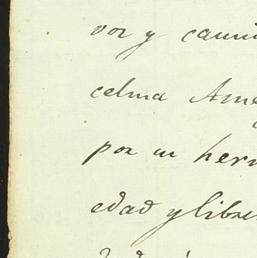 vor y cami
celma Ame
por su herm
edad y libre